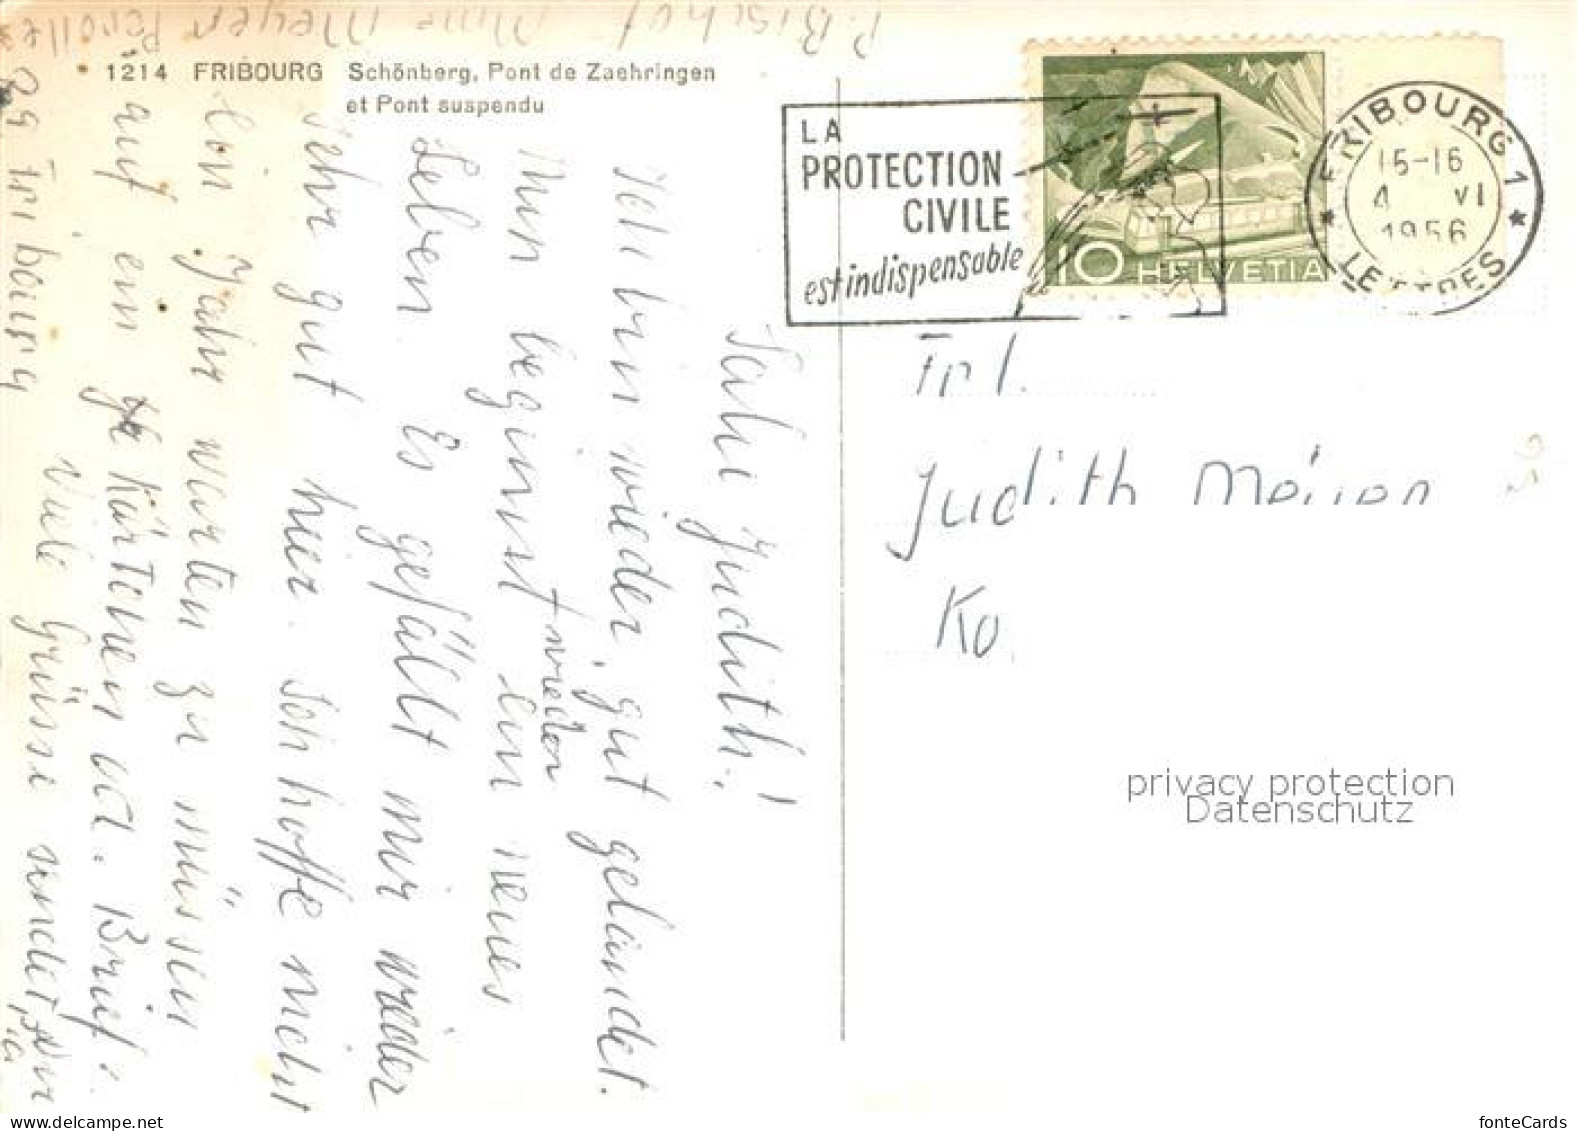 P. Bischof Mme Meyer Pérolles
89 Fribourg
1214 FRIBOURG Schönberg, Pont de Zaehringen
et Pont suspendu
LA
PROTECTION
CIVILE
est indispensable
10 HELVETIA
FRIBOURG 1
15-16
4 VI
1956
LETTRES
Salü Judith!
Ich bin wieder gut gelandet.
Nun beginnt wieder ein neues
Leben. Es gefällt mir wieder
sehr gut hier. Ich hoffe nicht
ein Jahr warten zu müssen
auf ein Kärtchen od. Brief.
Viele Grüsse sendet Dir
Frl.
Judith Meyer
Ko
privacy protection
Datenschutz
fonteCards